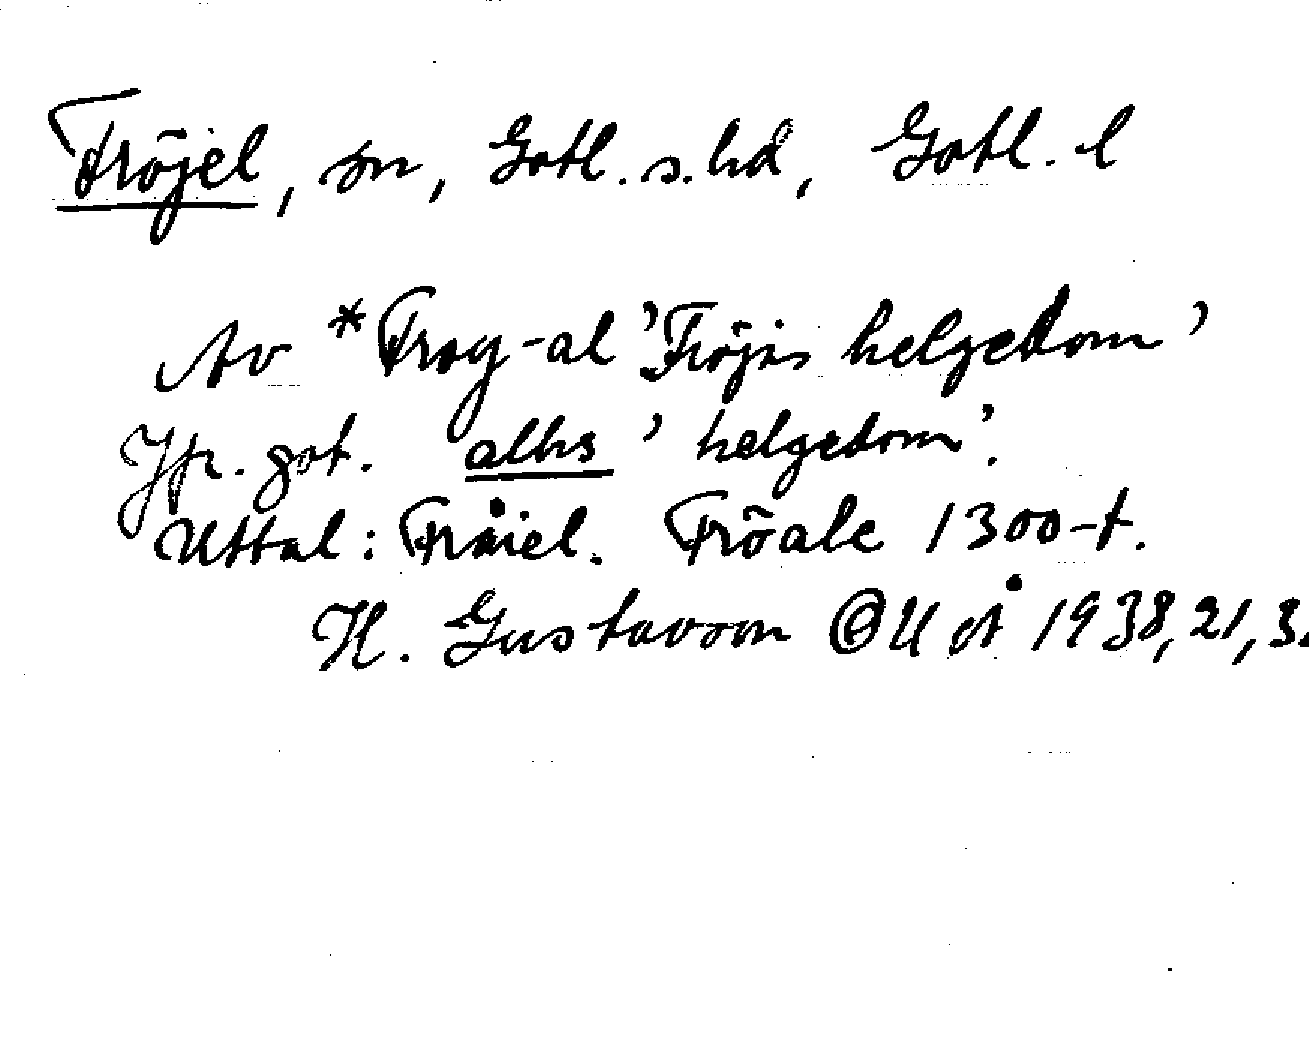 Fröjel, sn, Gotl. s. hd, Gotl. l
Av *Frøy-al 'Fröjs helgedom'
Jfr. got. alhs 'helgedom'.
Uttal: Fråiel. Fröale 1300-t.
H. Gustavson OUÅ 1938, 21, 3